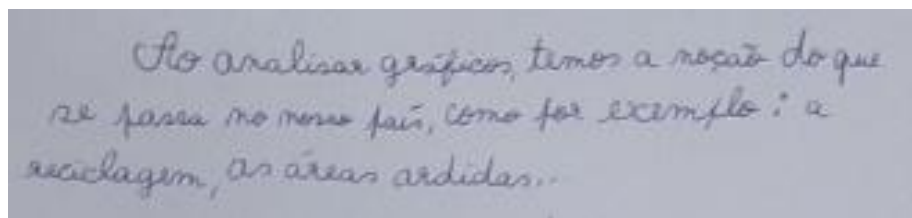 Ao analisar gráficos, temos a noção do que
se passa no nosso país, como por exemplo: a
reciclagem, as áreas ardidas...